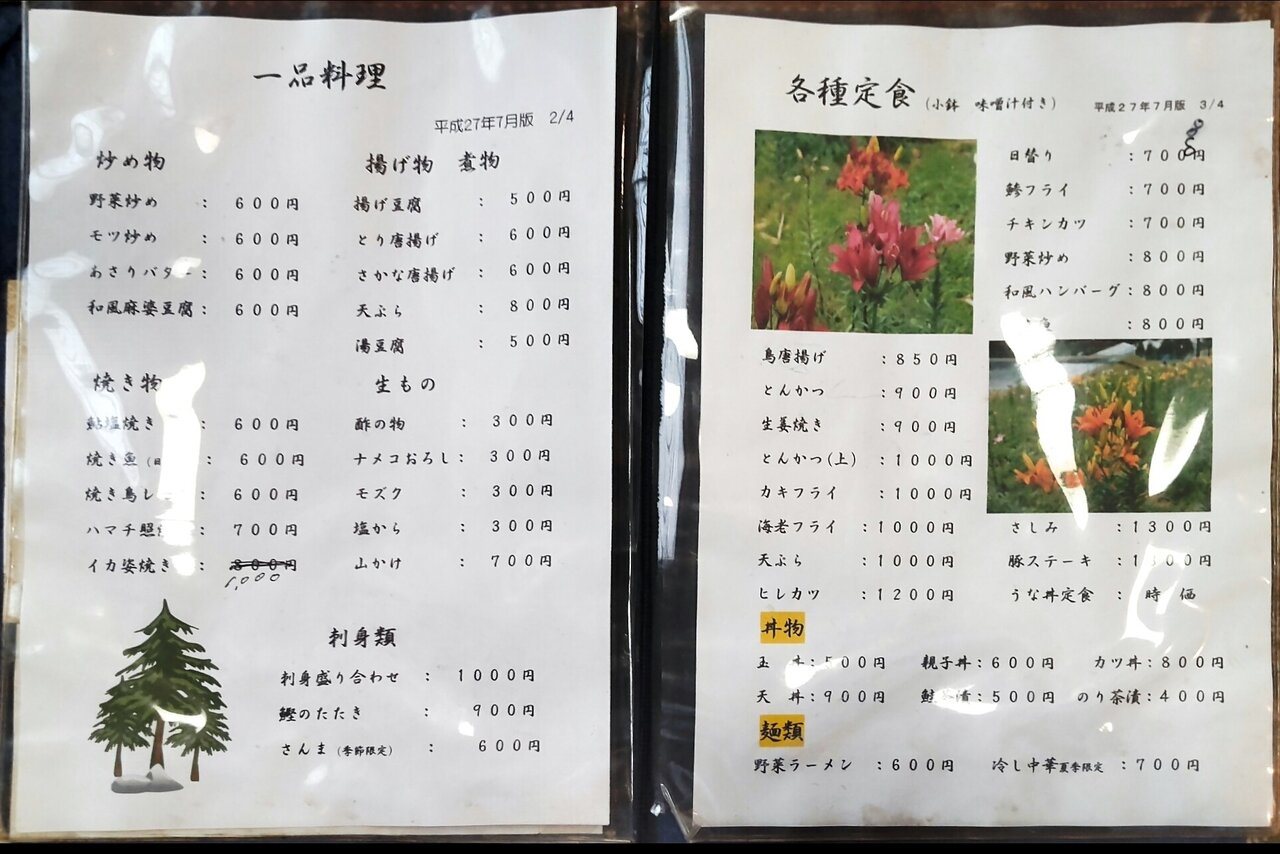 一品料理
平成27年7月版 2/4
炒め物
野菜炒め : 600円
モツ炒め : 600円
あさりバター : 600円
和風麻婆豆腐 : 600円
揚げ物 煮物
揚げ豆腐 : 500円
とり唐揚げ : 600円
さかな唐揚げ : 600円
天ぷら : 800円
湯豆腐 : 500円
焼き物
鮎塩焼き : 600円
焼き魚 : 600円
焼き鳥 : 600円
ハマチ照 : 700円
イカ姿焼き : 800円
1,000
生もの
酢の物 : 300円
ナメコおろし : 300円
モズク : 300円
塩から : 300円
山かけ : 700円
刺身類
刺身盛り合わせ : 1000円
鰹のたたき : 900円
さんま (季節限定) : 600円
各種定食 (小鉢 味噌汁付き)
平成27年7月版 3/4
日替り : 700円
鯵フライ : 700円
チキンカツ : 700円
野菜炒め : 800円
和風ハンバーグ : 800円
: 800円
鳥唐揚げ : 850円
とんかつ : 900円
生姜焼き : 900円
とんかつ(上) : 1000円
カキフライ : 1000円
海老フライ : 1000円
天ぷら : 1000円
ヒレカツ : 1200円
さしみ : 1300円
豚ステーキ :
うな丼定食 : 時 価
丼物
玉 丼 : 500円 親子丼 : 600円 カツ丼 : 800円
天 丼 : 900円 鮭茶漬 : 500円 のり茶漬 : 400円
麺類
野菜ラーメン : 600円 冷し中華夏季限定 : 700円